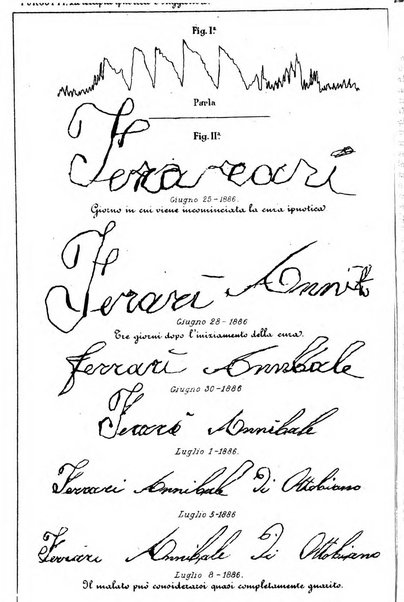 Fig. Iª
Parla
Fig. IIª
Ferarari
Giugno 25-1886.
Giorno in cui viene incominciata la cura ipnotica
Ferari Annib
Giugno 28-1886
Tre giorni dopo l'iniziamento della cura.
Ferrari Annibale
Giugno 30-1886
Ferari Annibale
Luglio 1-1886.
Ferrari Annibale Di Ottobiano
Luglio 5-1886
Ferrari Annibale Di Ottobiano
Luglio 8-1886.
Il malato può considerarsi quasi completamente guarito.